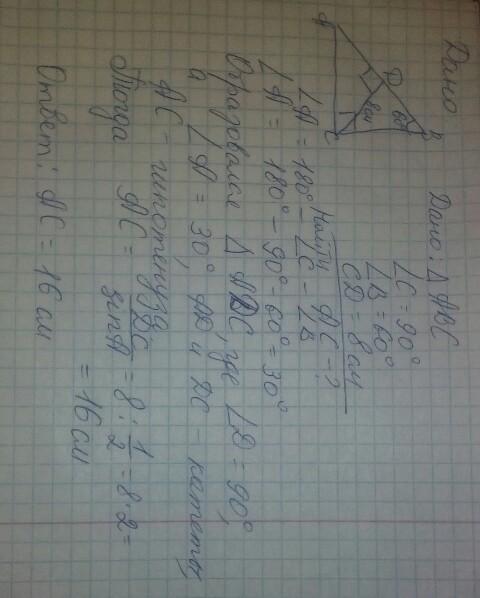 Дано
Дано: Δ ABC
∠C = 90°
∠B = 60°
CD = 8 см
Найти AC - ?
A
D
B
C
60°
8см
∠A = 180° - ∠C - ∠B
∠A = 180° - 90° - 60° = 30°
Образовался Δ ADC, где ∠D = 90°,
а ∠A = 30°, AD и DC - катеты
AC - гипотенуза
Тогда AC = DC / sin A = 8 : 1/2 = 8 · 2 =
= 16 см
Ответ: AC = 16 см